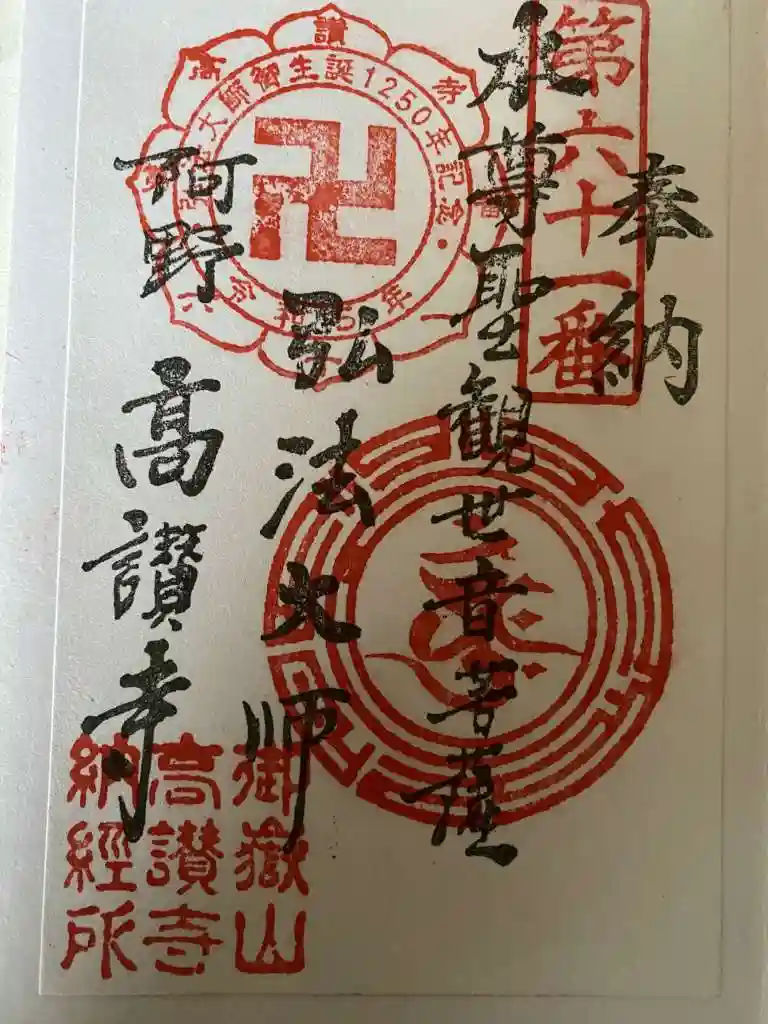 奉納
第六十一番
本尊聖観世音菩薩
弘法大師
阿野 高讃寺
高讃寺
弘法大師御生誕1250年記念・
令和5年
御嶽山
高讃寺
納經所